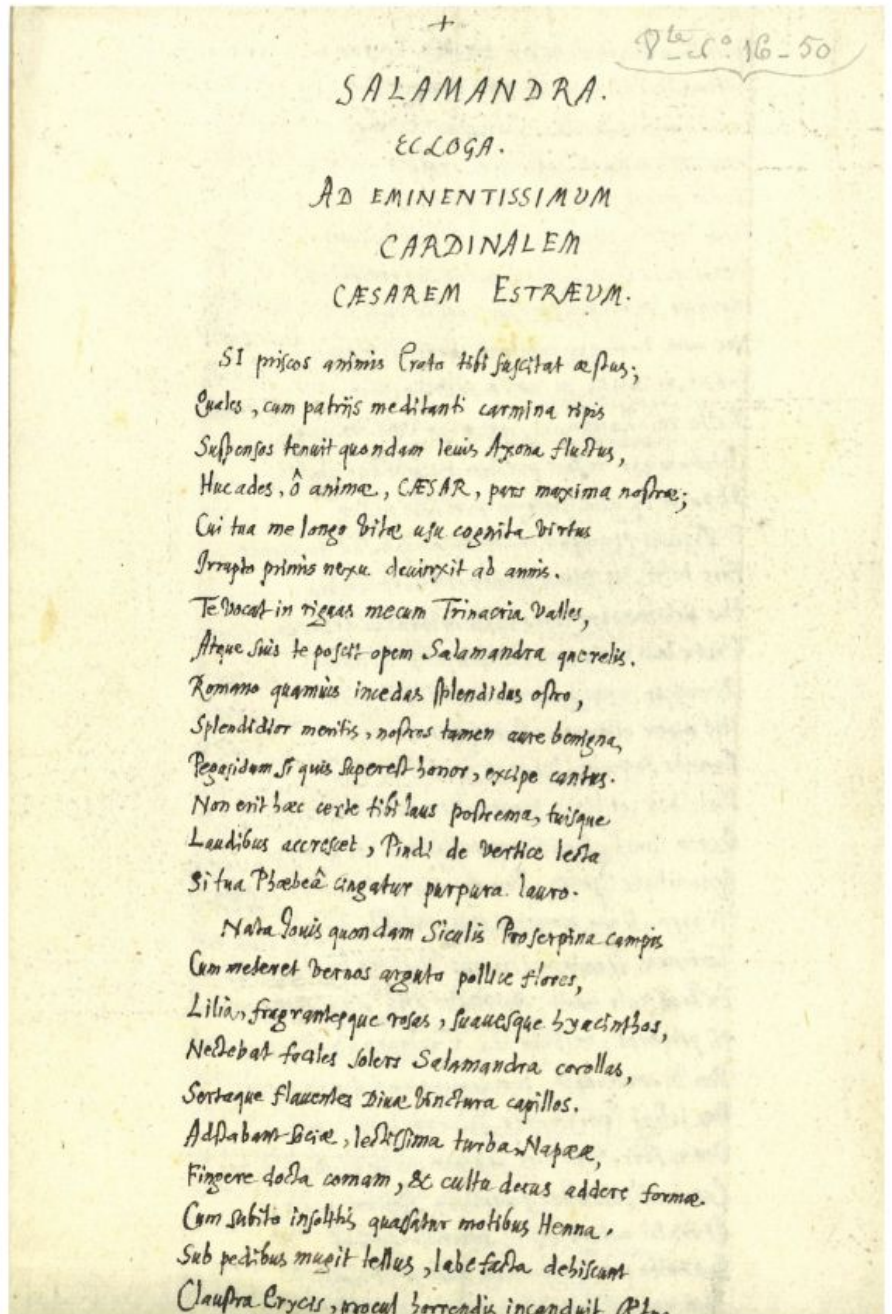 +
Pte. nº. 16-50
SALAMANDRA.
ECLOGA.
AD EMINENTISSIMUM
CARDINALEM
CÆSAREM ESTRÆUM.
SI priscos animis Erato tibi suscitat æstus;
Quales, cum patrijs meditanti carmina ripis
Suspensos tenuit quondam levis Axona fluctus,
Huc ades, ô animæ, CÆSAR, pars maxima nostræ;
Cui tua me longo vitæ usu cognita virtus
Irrupto primis nexu devinxit ab annis.
Te vocat in riguas mecum Trinacria valles,
Atque suis te poscit opem Salamandra querelis.
Romano quamuis incedas splendidus ostro,
Splendidior meritis, nostros tamen aure benigna,
Pegasidum si quis superest honor, excipe cantus.
Non erit hæc certe tibi laus postrema, tuisque
Laudibus accrescet, Pindi de vertice lecta
Si tua Phœbeâ cingatur purpura lauro.
Nata Iovis quondam Siculis Proserpina campis
Cum meteret vernos arguto pollice flores,
Lilia, fragrantesque rosas, suauesque hyacinthos,
Nectebat faciles solers Salamandra corollas,
Sertaque flauentes Diuæ vinctura capillos.
Adstabant sociæ, lectissima turba, Napææ,
Fingere docta comam, & cultu decus addere formæ.
Cum subito insolitis quassatur motibus Henna.
Sub pedibus mugit tellus, labefacta dehiscunt
Claustra Erycis, procul horrendis incanduit Ætna